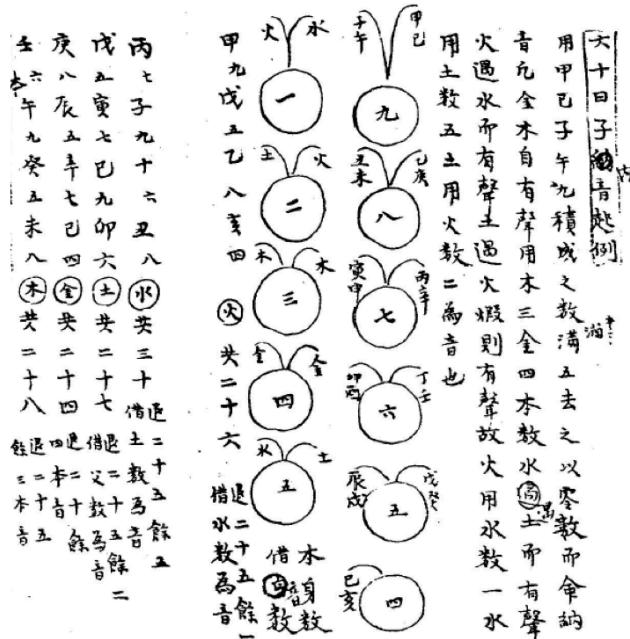 六十甲子納音起例
用甲己子午九積成之数滿五去之以零数而命納
音凡金木自有聲用木三金四本数水遇土而有聲
火遇水而有聲土遇火煅則有聲故火用水数一水
用土数五土用火数二為音也
甲己
子午
九
乙庚
丑未
八
丙辛
寅申
七
丁壬
卯酉
六
戊癸
辰戌
五
巳亥
四
水
火
一
火
土
二
木
木
三
金
金
四
土
水
五
本身数
借音数
甲九戊五乙八亥四火共二十六退二十五餘一
借水数為音
丙七子九十六丑八水共三十退二十五餘五
借土数為音
戊五寅七巳九卯六土共二十七退二十五餘二
借父数為音
庚八辰五辛七巳四金共二十四退二十餘
四本音
壬六午九癸五未八木共二十八退二十五
餘三本音